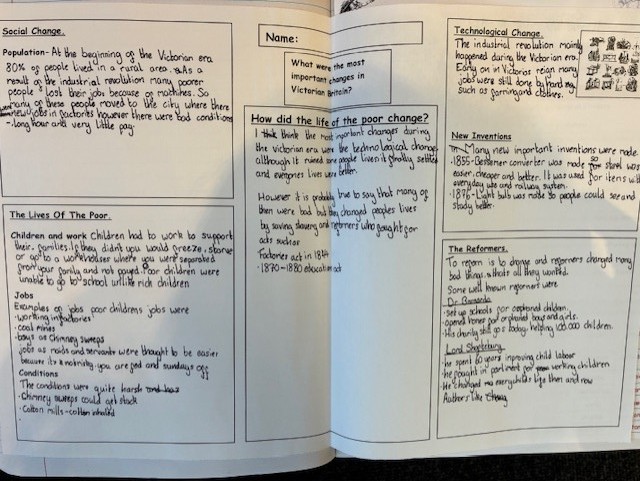 Social Change.
Population- At the beginning of the Victorian era
80% of people lived in a rural area. As a
result of the industrial revolution many poorer
people lost their jobs because of machines. So
many of these people moved to the city where there
were new jobs in factories however there were bad conditions
-long hour and very little pay.
The Lives Of The Poor.
Children and work Children had to work to support
their families. If they didn't you would freeze, starve
or go to a workhouse where you were separated
from your family and not payed. Poor children were
unable to go to school unlike rich children
Jobs
Examples of jobs poor childrens jobs were
·working in factories
·coal mines
·boys as chimney sweeps
jobs as maids and servants were thought to be easier
because its not risky, you are fed and sundays off
Conditions
The conditions were quite harsh
·Chimney sweeps could get stuck
·Cotton mills - cotton inhaled
Name:
What were the most
important changes in
Victorian Britain?
How did the life of the poor change?
I think the most important changes during
the victorian era were the technological change
although it ruined some people lives it finally settled
and everyones lives were better.
However it is probably true to say that many of
them were bad but they changed peoples lives
by saving slavery and reformers who fought for
acts such as
Factories act in 1844
·1870-1880 education act
Technological Change.
The industrial revolution mainly
happened during the Victorian era.
Early on in Victorias reign many
jobs were still done by hand
such as farming and clothes.
New Inventions
Many new important inventions were made.
·1855-Bessemer converter was made so steel was
easier, cheaper and better. It was used for items with
everyday use and railway system.
·1878-Light bulbs was made so people could see and
study better.
The Reformers.
To reform is to change and reformers changed many
bad things. thats all they wanted.
Some well known reformers were
Dr Barnardo
·Set up schools for orphaned children.
·opened homes for orphaned boys and girls.
·His charity still go's today helping 100,000 children.
Lord Shaftesbury
·he spent 60 years improving child labour
·he fought in parliment for working children
·He changed everychilds life then and now
Authors like